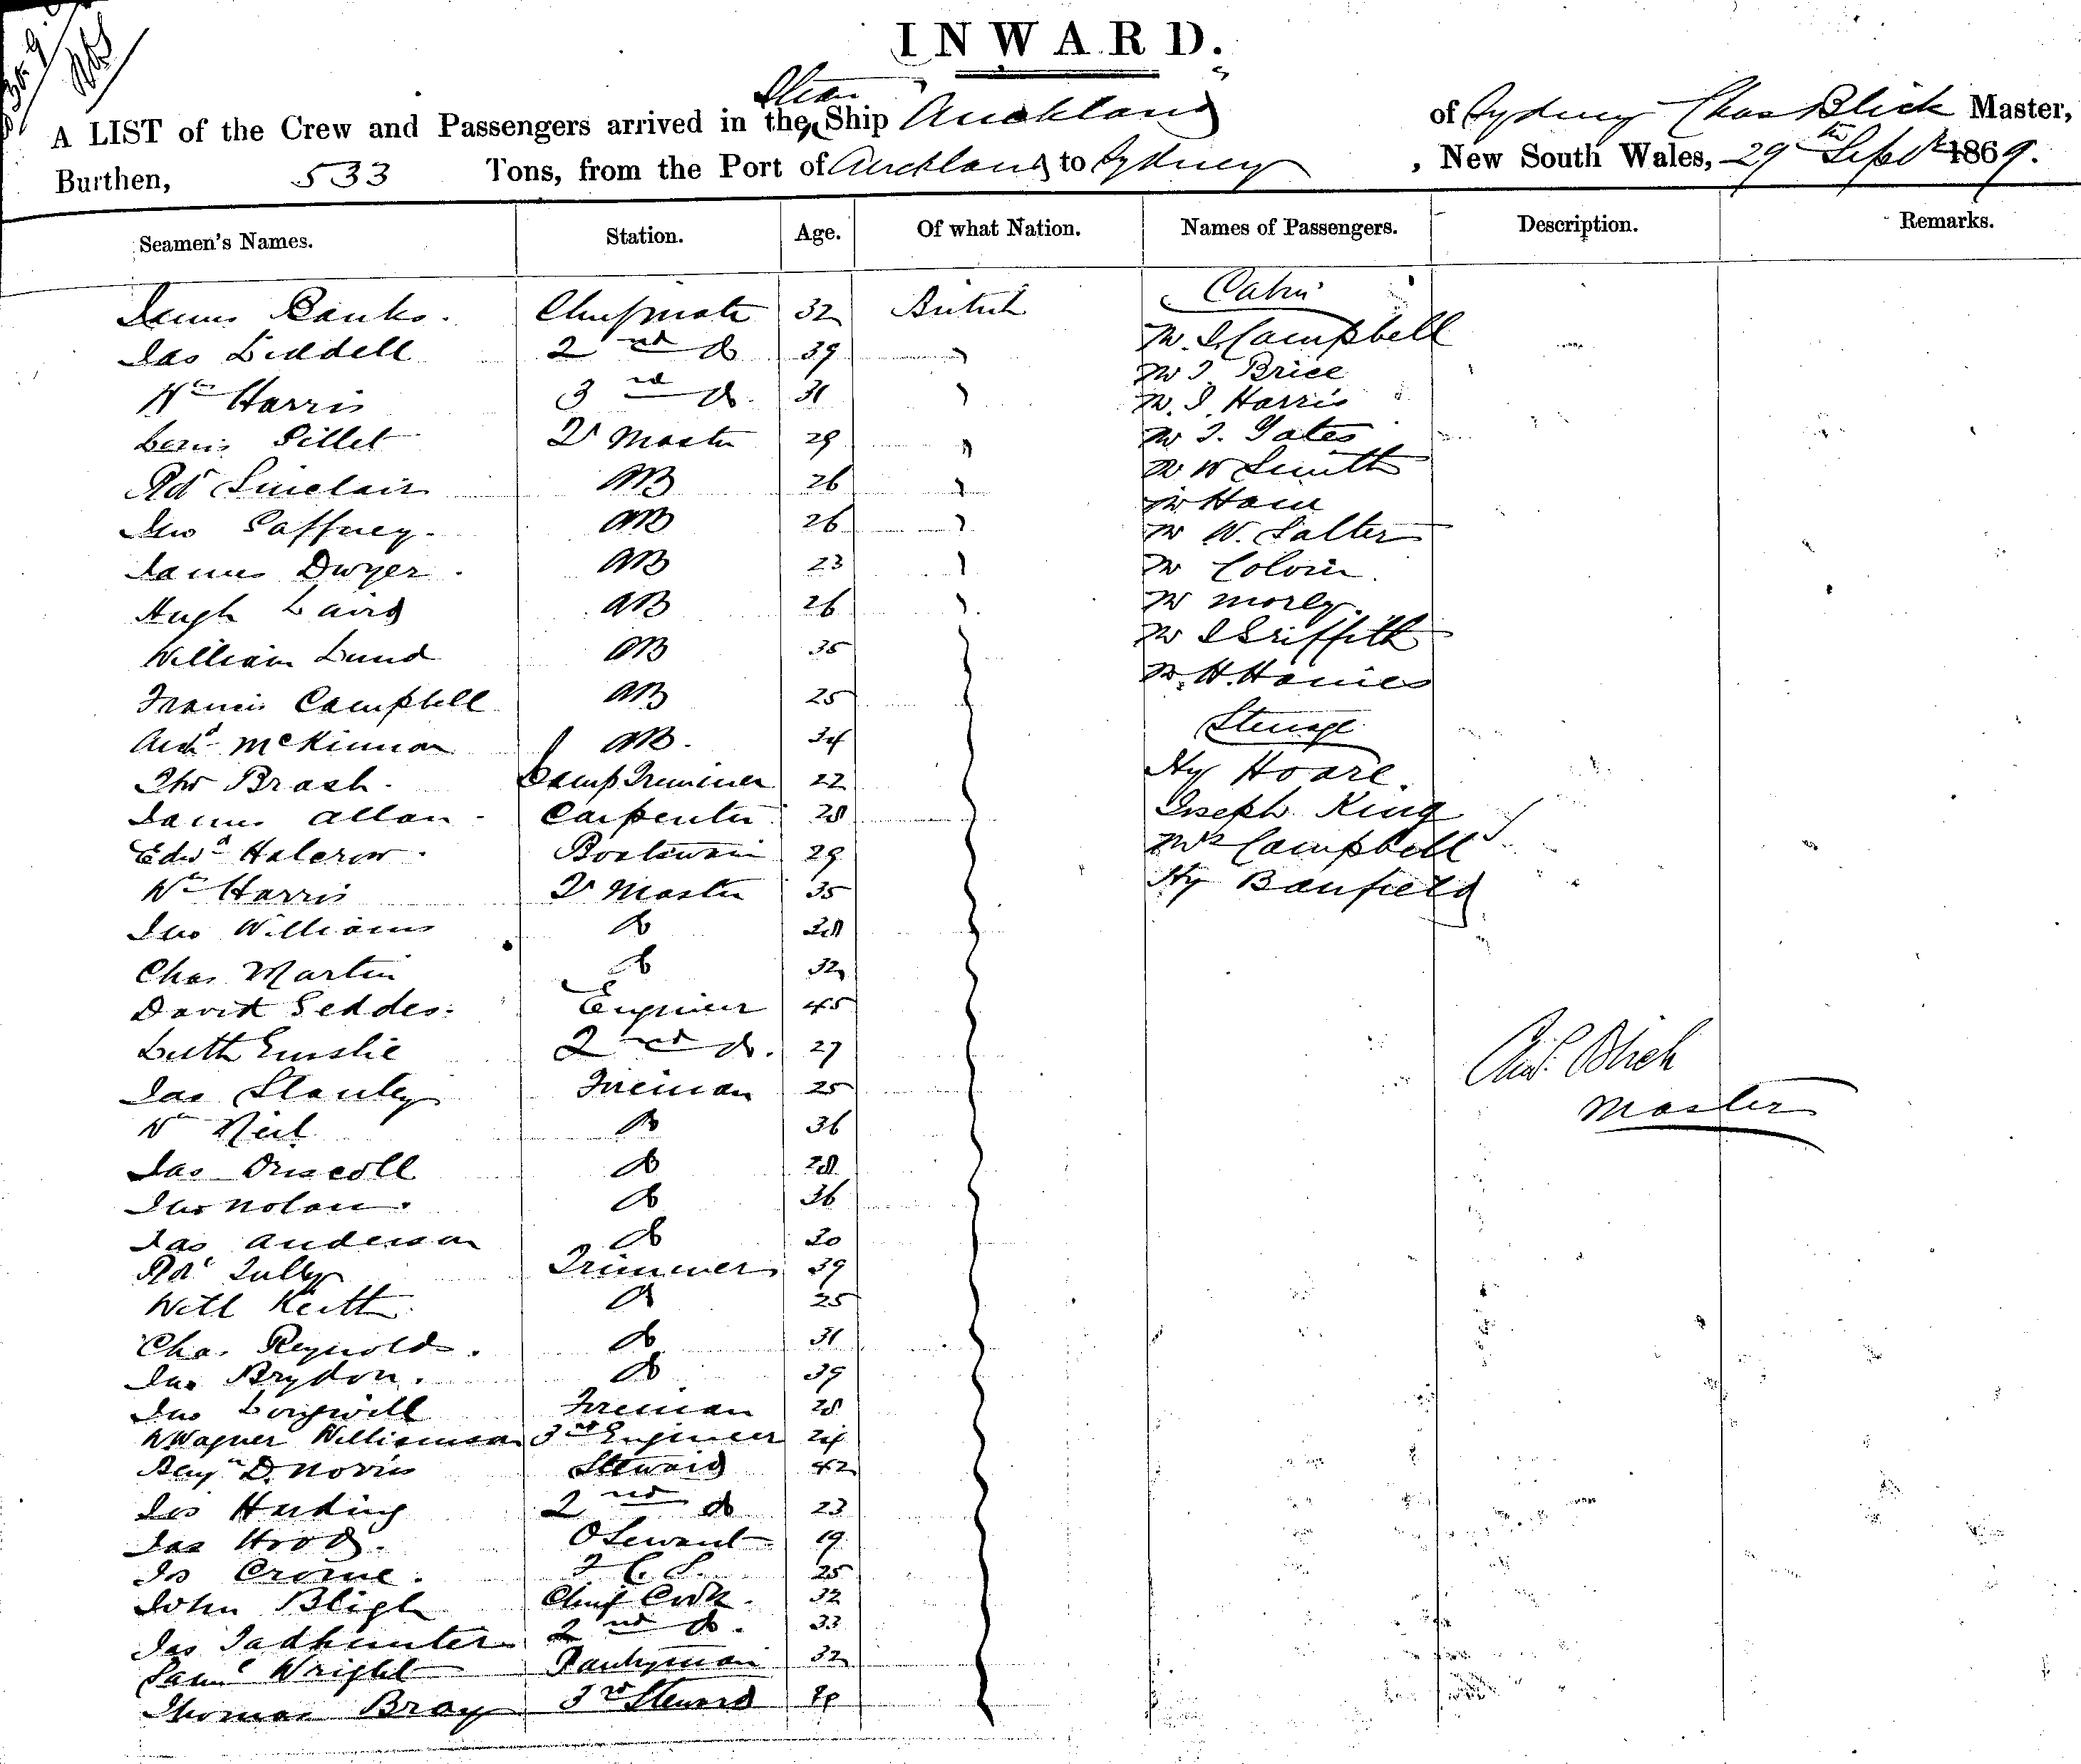 INWARD.
A LIST of the Crew and Passengers arrived in the Steam Ship Auckland of Sydney Chas Blick Master,
Burthen, 533 Tons, from the Port of Auckland to Sydney, New South Wales, 29th Septr 1869.
Seamen's Names. Station. Age. Of what Nation. Names of Passengers. Description. Remarks.
James Banks. Chief mate 32 British Cabin
Jas Liddell 2nd do 39 " Mr. J. Campbell
Wm Harris 3rd do. 31 " Mr J. Brice
Mr. J. Harris
Louis Pillet Qr Master 29 " Mr J. Yates
Rot Sinclair AB 26 " Mr W Smith
Mr Ham
Jno Gaffney. AB 26 " Mr W. Salter
James Dwyer. AB 23 " Mr Colvin.
Hugh Laird AB 26 " Mr Morly.
William Lund AB 35 Mr J Griffith
Francis Campbell AB 25 Mr. H. Haines
Archd McKinnon AB. 34 Steerage
Thos Brash. Lamp Trimmer 22 Hy Hoare.
James Allan. Carpenter. 28 Joseph King
Edwd Halcrow. Boatswain 29 Mrs Campbell
Wm Harris Qr Master 35 Hy Banfield
Jno Williams do 28
Chas Martin do 32
David Geddes. Engineer 45
Luth Emslie 2nd do. 27 Chas. Blick
Jas Stanley Fireman 25 Master
Wm Neil do 36
Jas Driscoll do 28
Jno Nolan. do 36
Jas Anderson do 30
Robt Tully Trimmer 39
Will Keith do 25
Chas. Reynolds. do 31
Jno Brydon. do 39
Jno Longwill Fireman 28
W Wagner Williamson 3rd Engineer 24
Benjn D. Norris Steward 42
Jos Harding 2nd do 23
Jas Hood. 19
Js Crome. F. C. S. 25
John Bligh Chief Cook. 32
Jas Tadhunter 2nd do. 33
Saml Wright Pantryman 32
Thomas Bray 3rd Steward